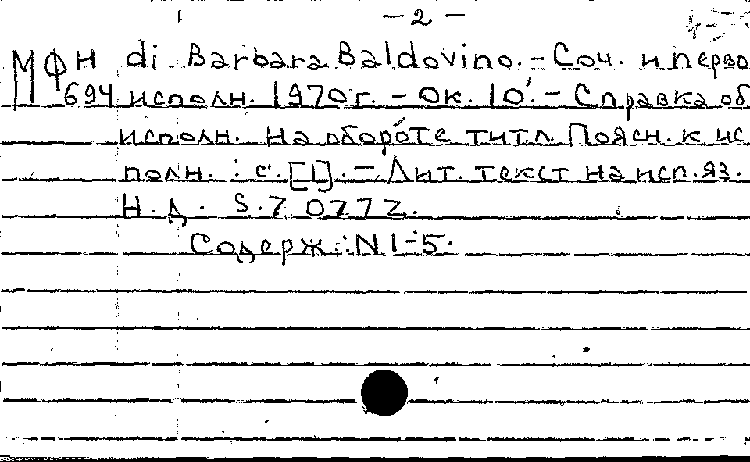 — 2 —
МФН di Barbara Baldovino. – Соч. и перво
694 исполн. 1970 г. – Ок. 10'. – Справка об
исполн. на обороте титл. Поясн. к ис
полн.: с. [1]. – Лит. текст на исп. яз.
Н. д. S. 7 0772.
Содерж.: N 1–5.